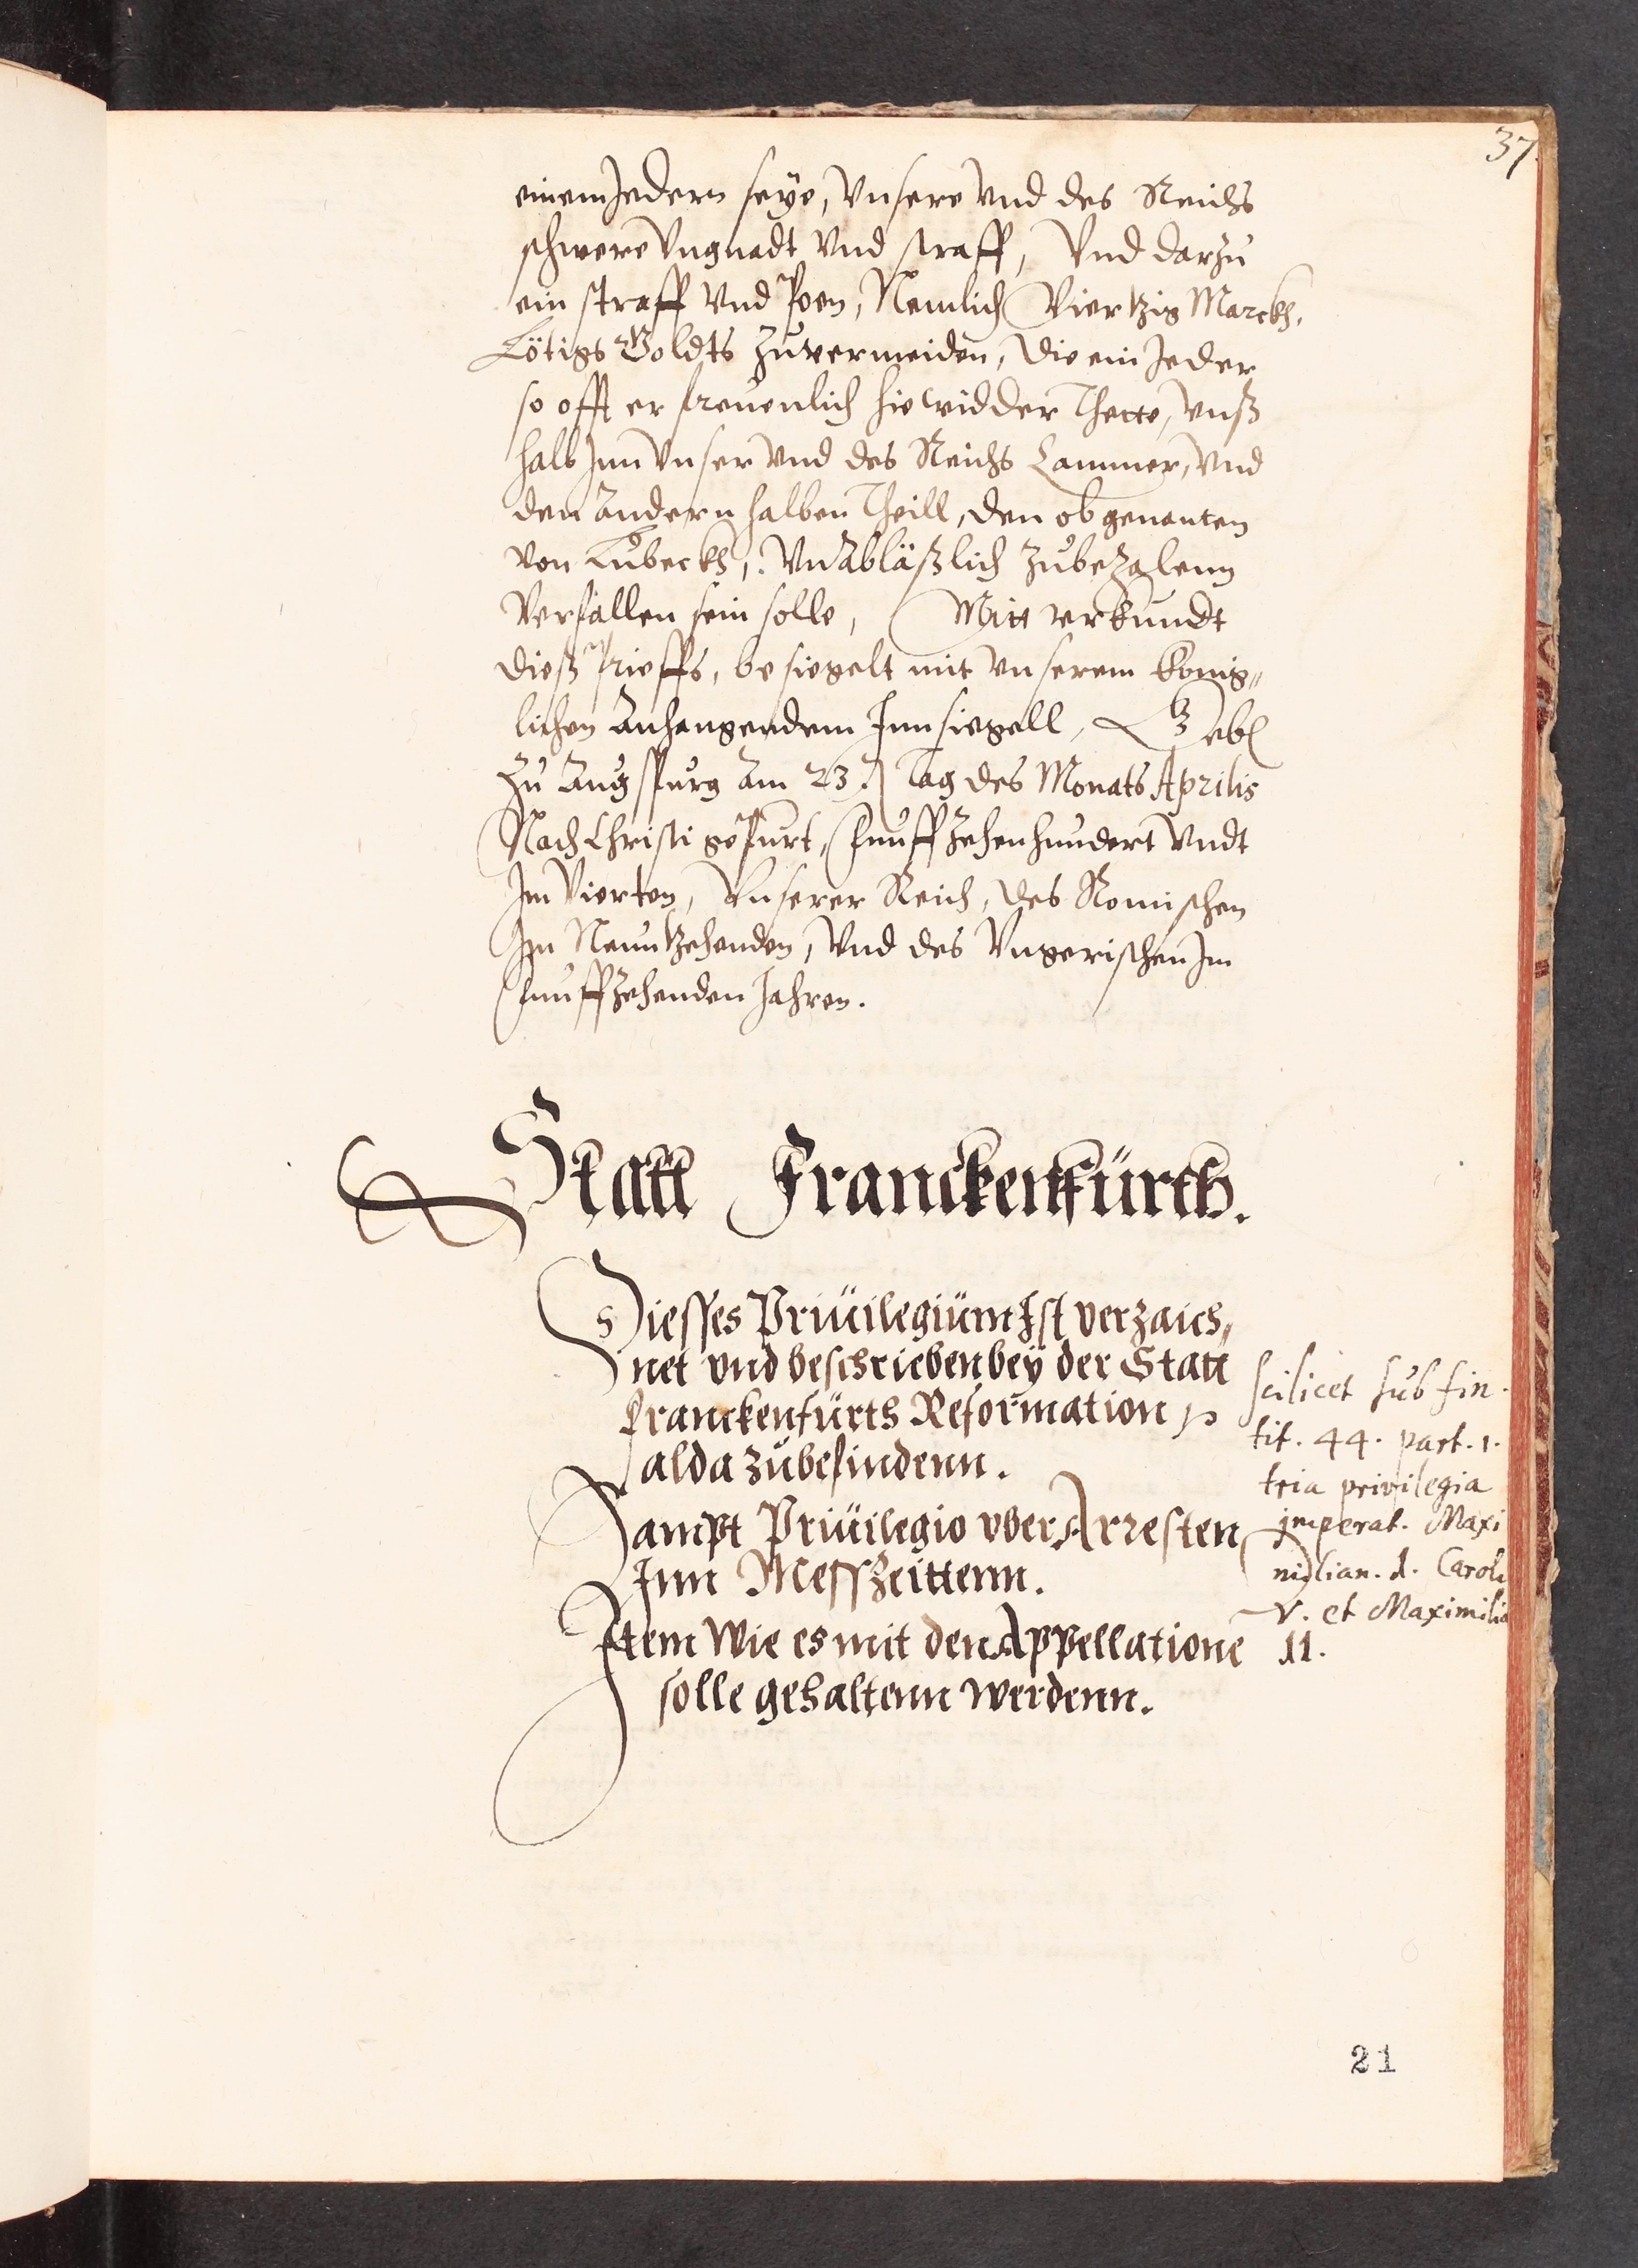 37
einem Jedern seye, Vnsere Vnd des Reichs
schwere Vngnadt Vnd straff, Vnd darzu
ein straff Vnd Poen, Nemlich Viertzig Marckh,
Lötigs Goldts zuvermeiden, die ein Jeder
so offt er freuenlich hiewidder Thette, Vnß
halb Inn Vnser Vnd des Reichs Cammer, Vnd
den Andern halben Theill, den obgenanten
von Lubeckh, Vnabläßlich zubezalenn
Verfallen sein solle, Mitt Verkundt
dieß Prieffs, besiegelt mit Vnserem König„
lichen Anhangendem Innsiegell, Gebl
Zu Augspurg Am 23. Tag des Monats Aprilis
Nach Christi gepurt, funffzehenhundert Vndt
Im Vierten, Vnserer Reich, des Romischen
Im Neuntzehenden, Vnd des Vngerischen Im
funffzehenden Jahren.
Statt Franckenfürth.
Diesses Priuilegium Ist verzaich„
net vnd beschrieben bey der Statt
franckenfürts Reformation
alda zubefindenn.
Sampt Priuilegio vber Arresten
Inn Messzeittenn.
Item Wie es mit den Appellatione
solle gehaltenn werdenn.
scilicet sub fin.
tit. 44. part. 1.
tria privilegia
imperat. Maxi
milian. d. Caroli
V. et Maximilia
II.
21